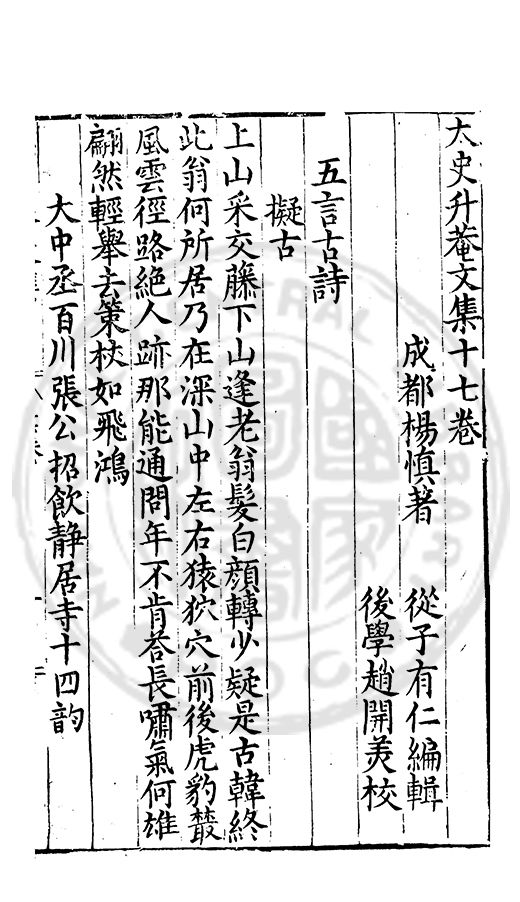 太史升菴文集十七卷
成都楊慎著 從子有仁編輯
後學趙開美校
五言古詩
擬古
上山采交藤下山逢老翁髮白顏轉少疑是古韓終
此翁何所居乃在深山中左右猿狖穴前後虎豹叢
風雲徑路絕人跡那能通問年不肯荅長嘯氣何雄
翩然輕舉去策杖如飛鴻
大中丞百川張公招飲靜居寺十四韵